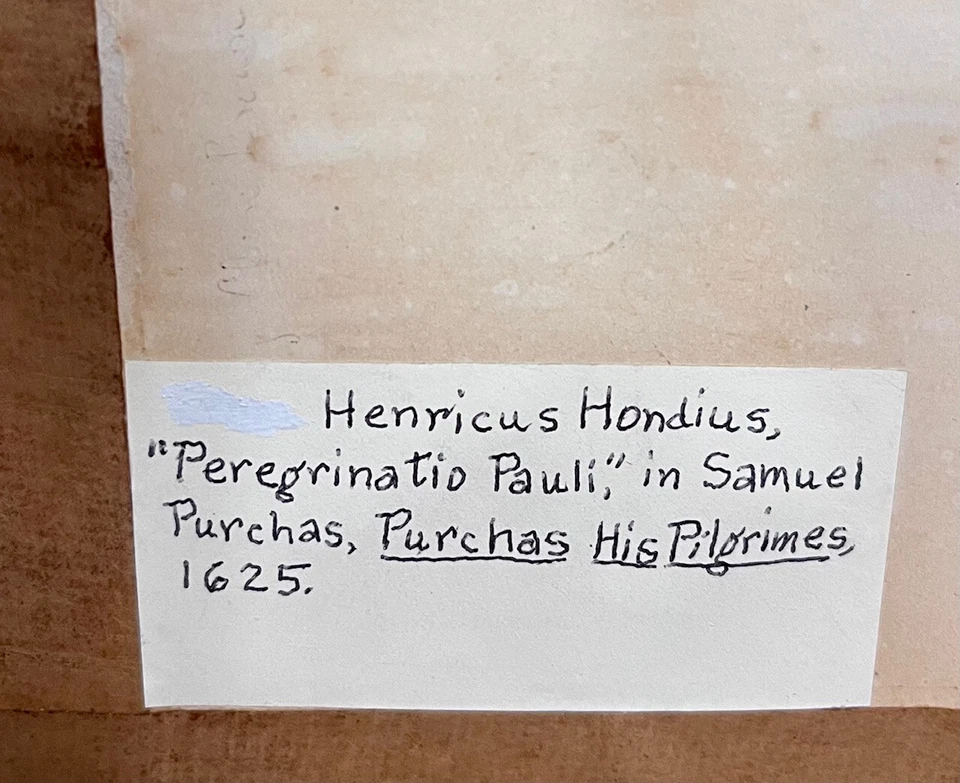 Henricus Hondius,
"Peregrinatio Pauli," in Samuel
Purchas, Purchas His Pilgrimes,
1625.